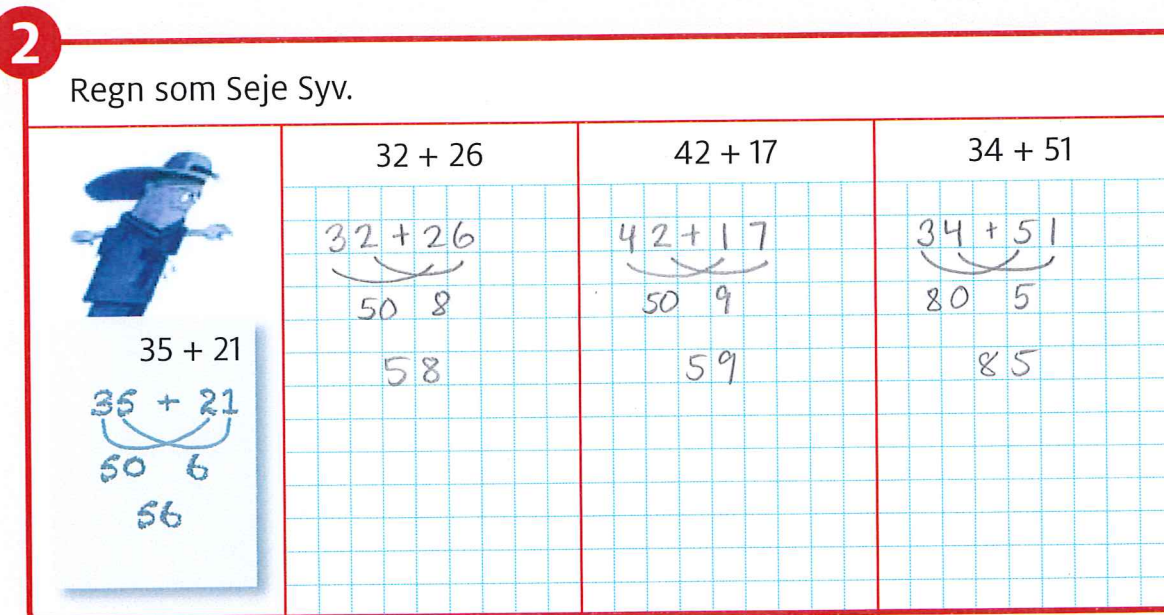 2
Regn som Seje Syv.
35 + 21
35 + 21
50 6
56
32 + 26
32 + 26
50 8
58
42 + 17
42 + 17
50 9
59
34 + 51
34 + 51
80 5
85